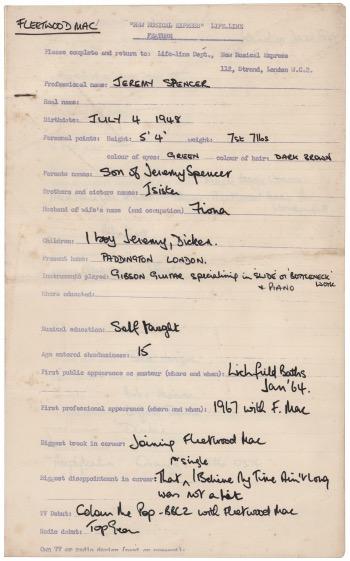 FLEETWOOD MAC
"NEW MUSICAL EXPRESS" LIFE-LINE
FEATURE
Please complete and return to: Life-line Dept., New Musical Express
112, Strand, London W.C.2.
Professional name: JEREMY SPENCER
Real name:
Birthdate: JULY 4 1948
Personal points: Height: 5' 4" weight: 7st 7lbs
colour of eyes: GREEN colour of hair: DARK BROWN
Parents names: Son of Jeremy Spencer
Brothers and sisters names: 1 sister
Husband of wife's name (and occupation) Fiona
Children: 1 boy Jeremy, Dicken.
Present home: PADDINGTON LONDON.
Instruments played: GIBSON GUITAR specialising in 'SLIDE' or 'BOTTLENECK' WORK
+ PIANO
Where educated:
Musical education: Self taught
Age entered showbusiness: 15
First public appearance as amateur (where and when): Lichfield Baths
Jan '64.
First professional appearance (where and when): 1967 with F. Mac
Biggest break in career: Joining Fleetwood Mac
Biggest disappointment in career: That our single I Believe My Time Ain't Long
was not a hit
TV Debut: Colour Me Pop - BBC2 with Fleetwood Mac
Radio debut: Top Gear
Own TV or radio series (past or present):